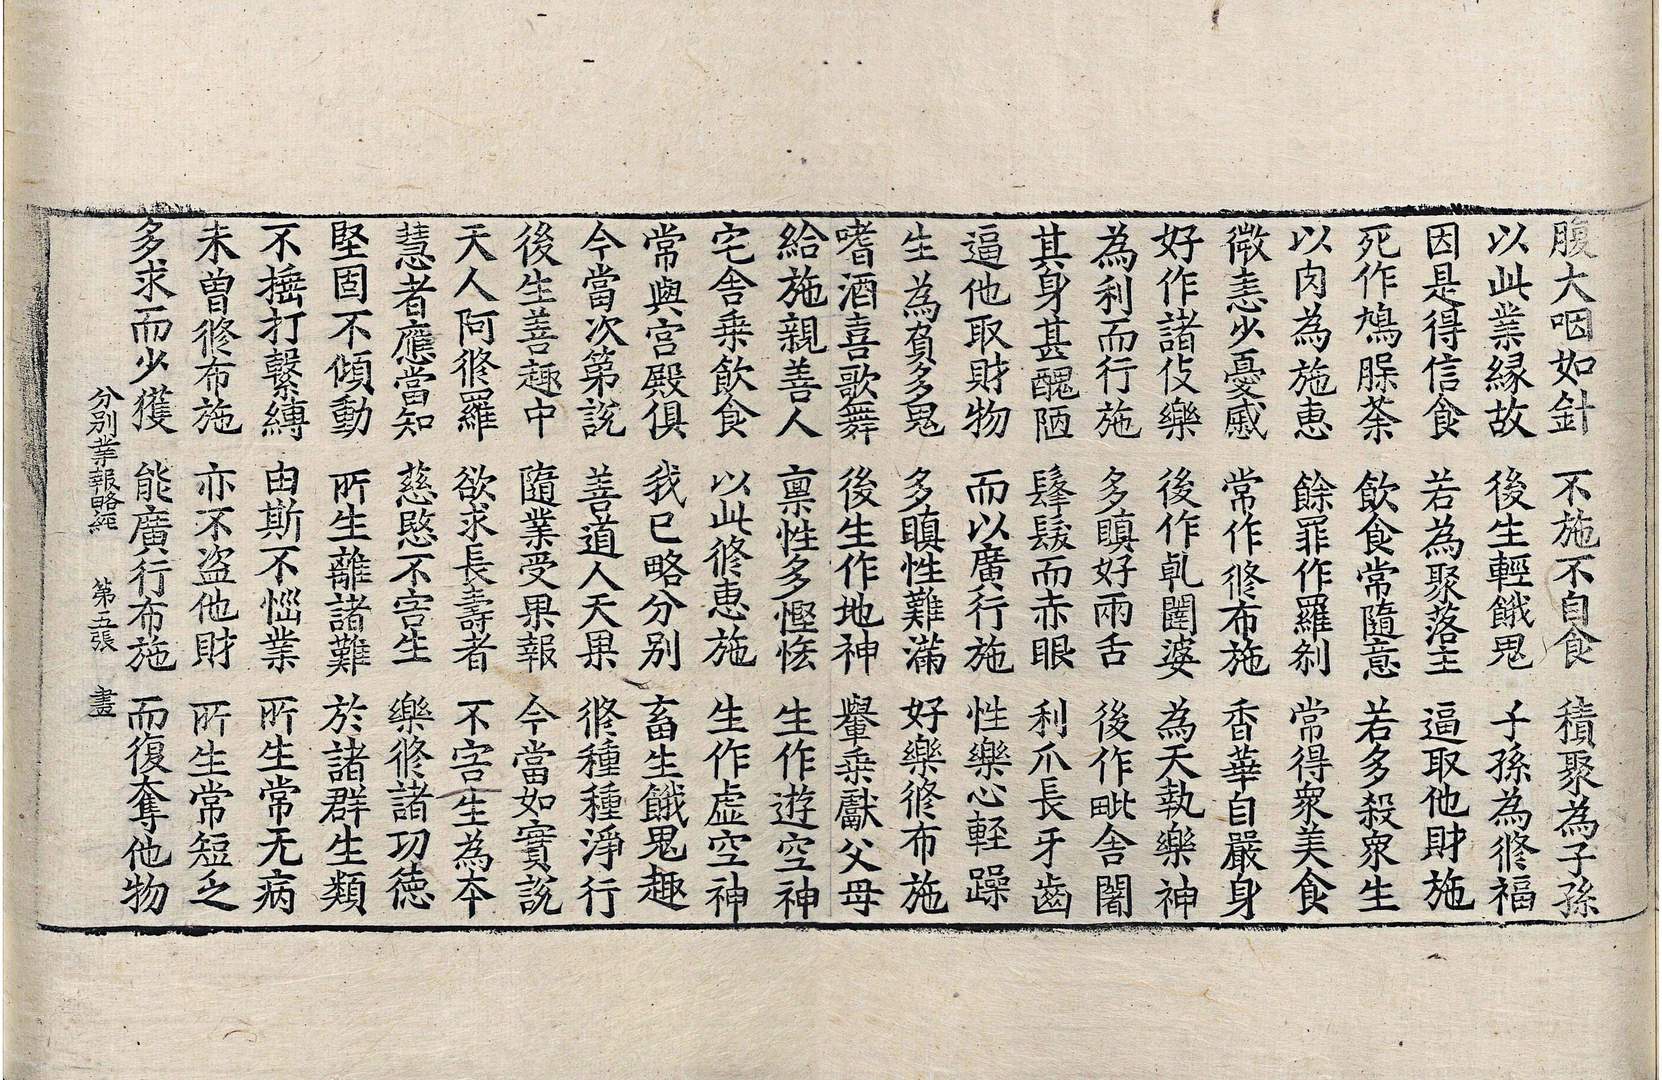 腹大咽如針 不施不自食 積聚為子孫
以此業縁故 後生輕餓鬼 子孫為修福
因是得信食 若為聚落主 逼取他財施
死作鳩腺荼 飲食常隨意 若多殺眾生
以肉為施恵 餘罪作羅刹 常得眾美食
微恚少憂慼 常作修布施 香華自嚴身
好作諸伎樂 後作乹闥婆 為天執樂神
為利而行施 多瞋好兩舌 後作毗舍闍
其身甚醜陋 髼髮而赤眼 利爪長牙齒
逼他取財物 而以廣行施 性樂心輕躁
生為富多鬼 多瞋性難滿 好樂修布施
嗜酒喜歌舞 後生作地神 轝乗獻父母
給施親善人 禀性多慳悋 生作遊空神
宅舍乗飲食 以此修恵施 生作虛空神
常與宮殿俱 我已略分别 畜生餓鬼趣
今當次第說 善道人天果 修種種淨行
後生善趣中 隨業受果報 今當如實說
天人阿修羅 欲求長壽者 不害生為本
慧者應當知 慈愍不害生 樂修諸功徳
堅固不傾動 所生離諸難 於諸群生類
不捶打繫縛 由斯不惱業 所生常无病
未曽修布施 亦不盗他財 所生常短乏
多求而少獲 能廣行布施 而復奪他物
分别業報略經 第五張 畫